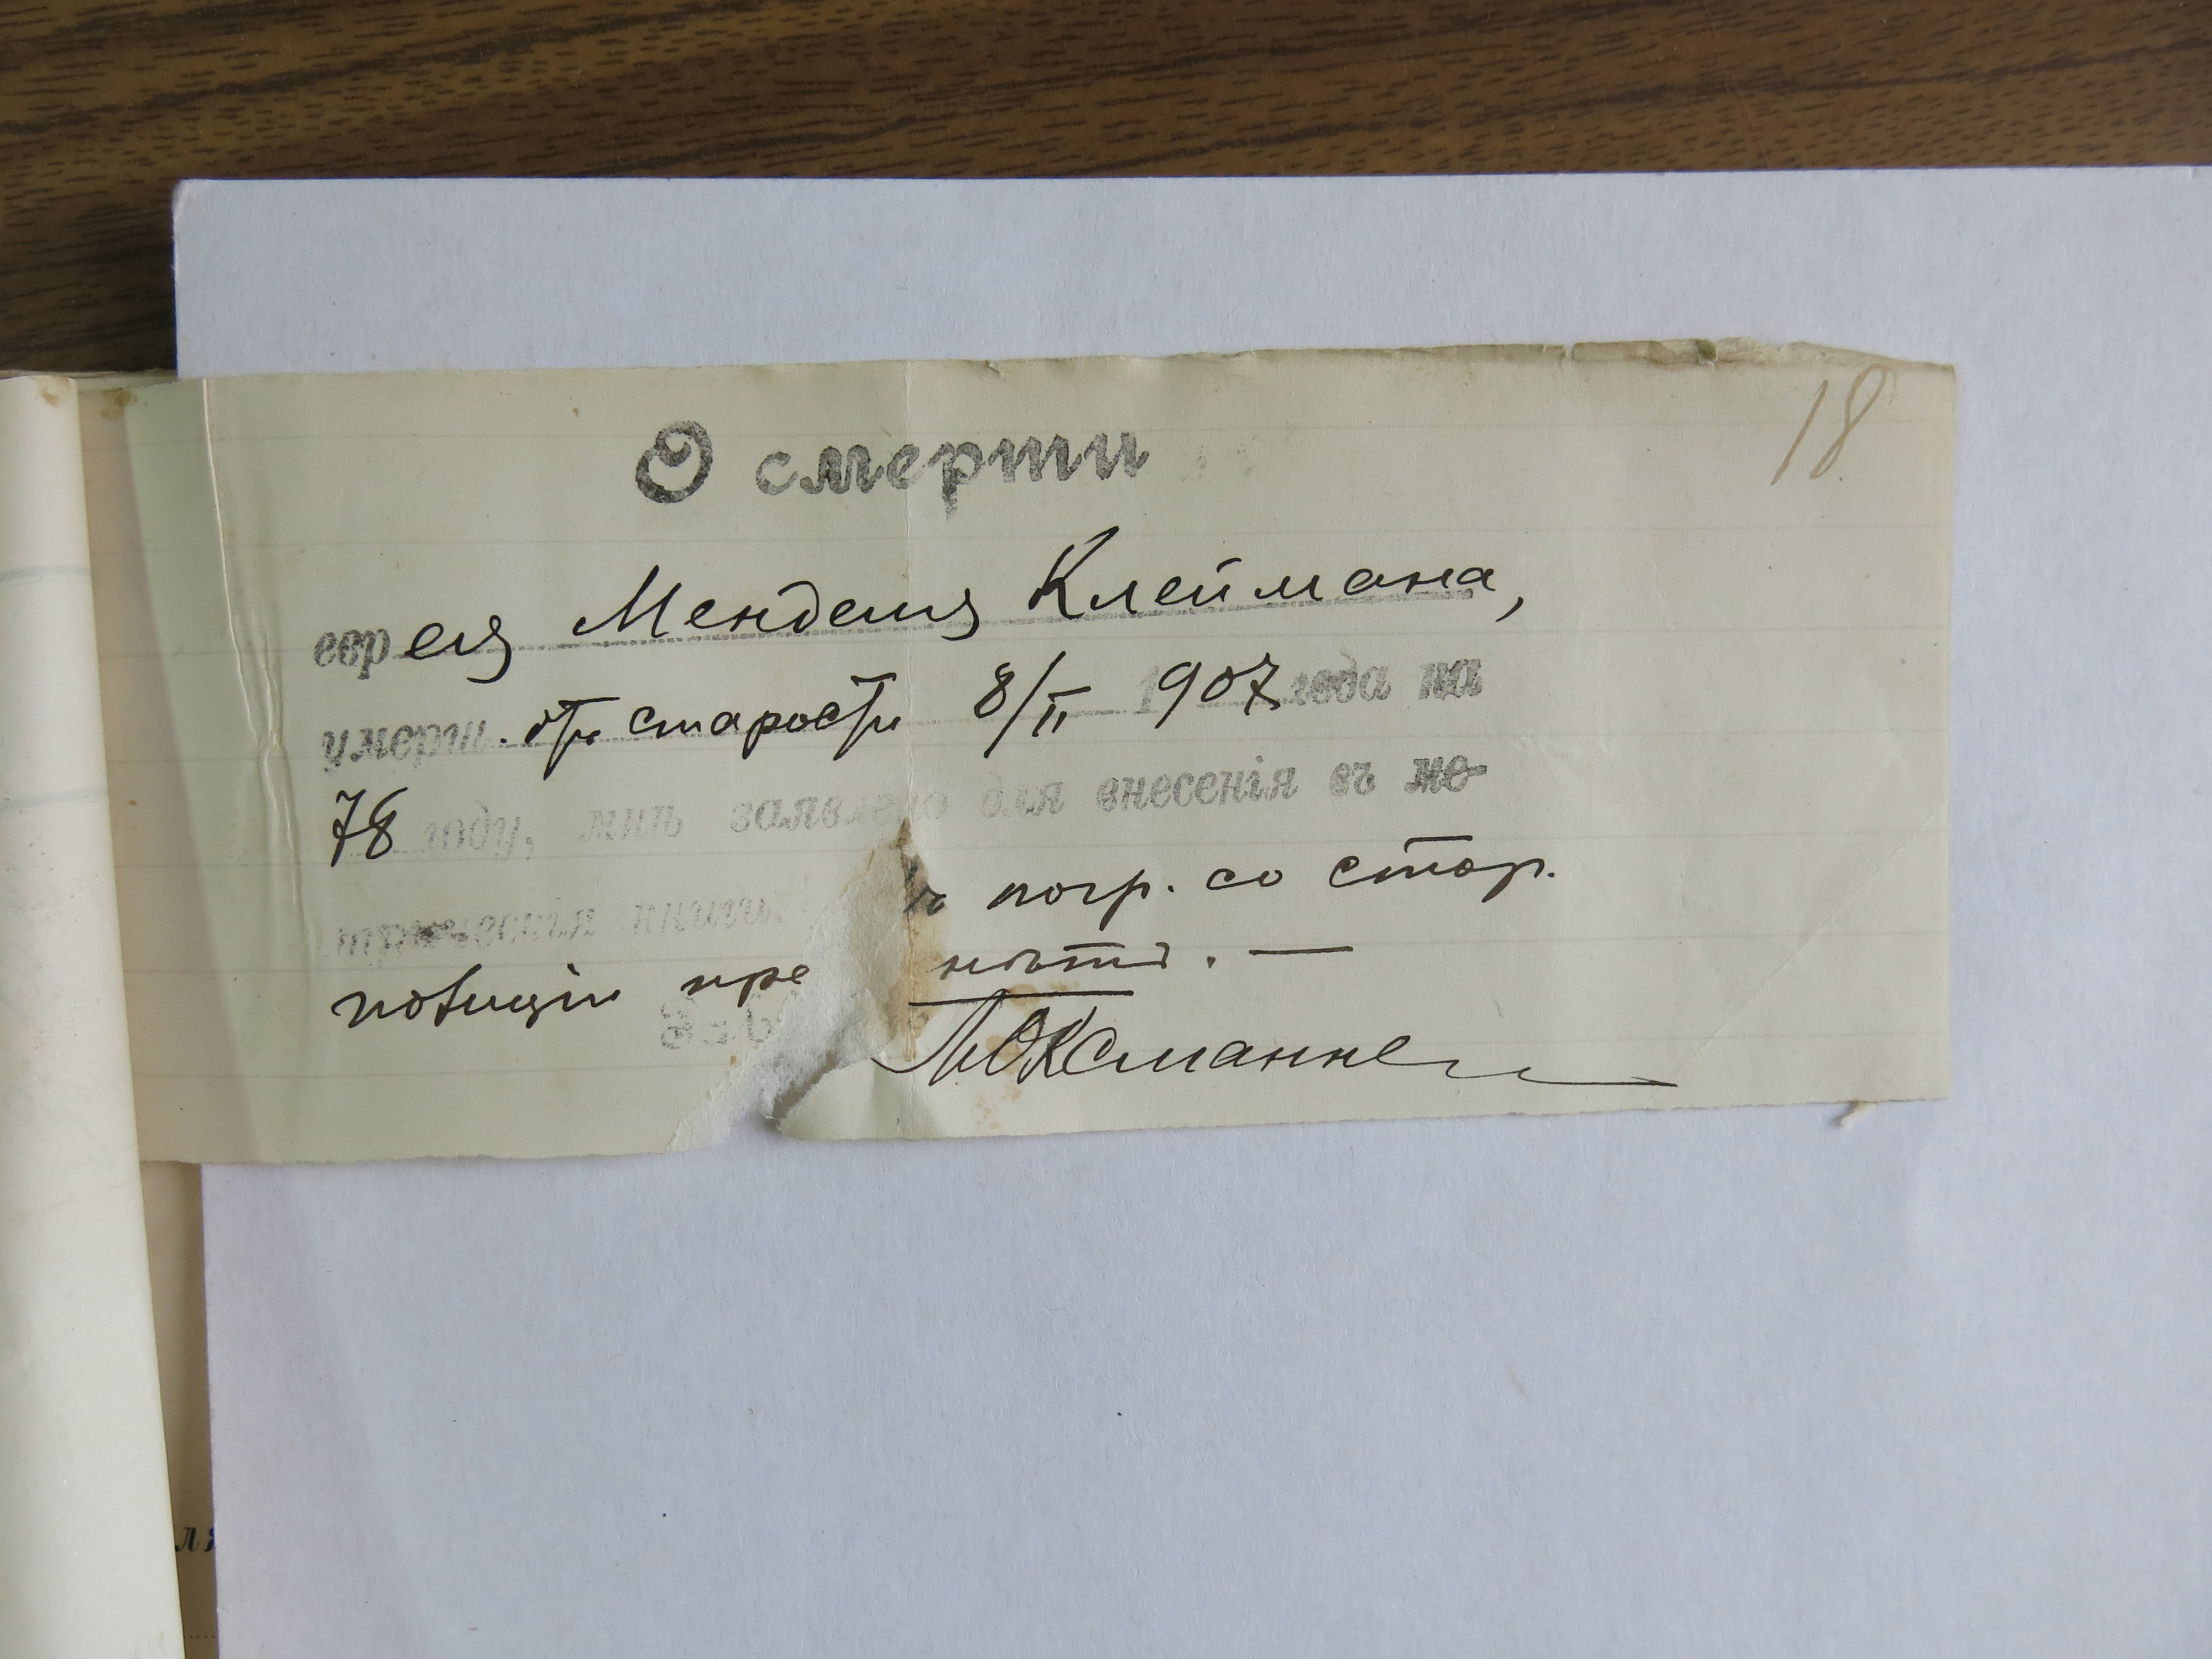 18
О смерти
еврея Менделя Клеймана,
умерш. отъ старости 8/II 1907 года на
78 году, мнѣ заявлено для внесенія въ ме-
трическія книги. ъ погр. со стор.
полиціи пре нѣтъ. —